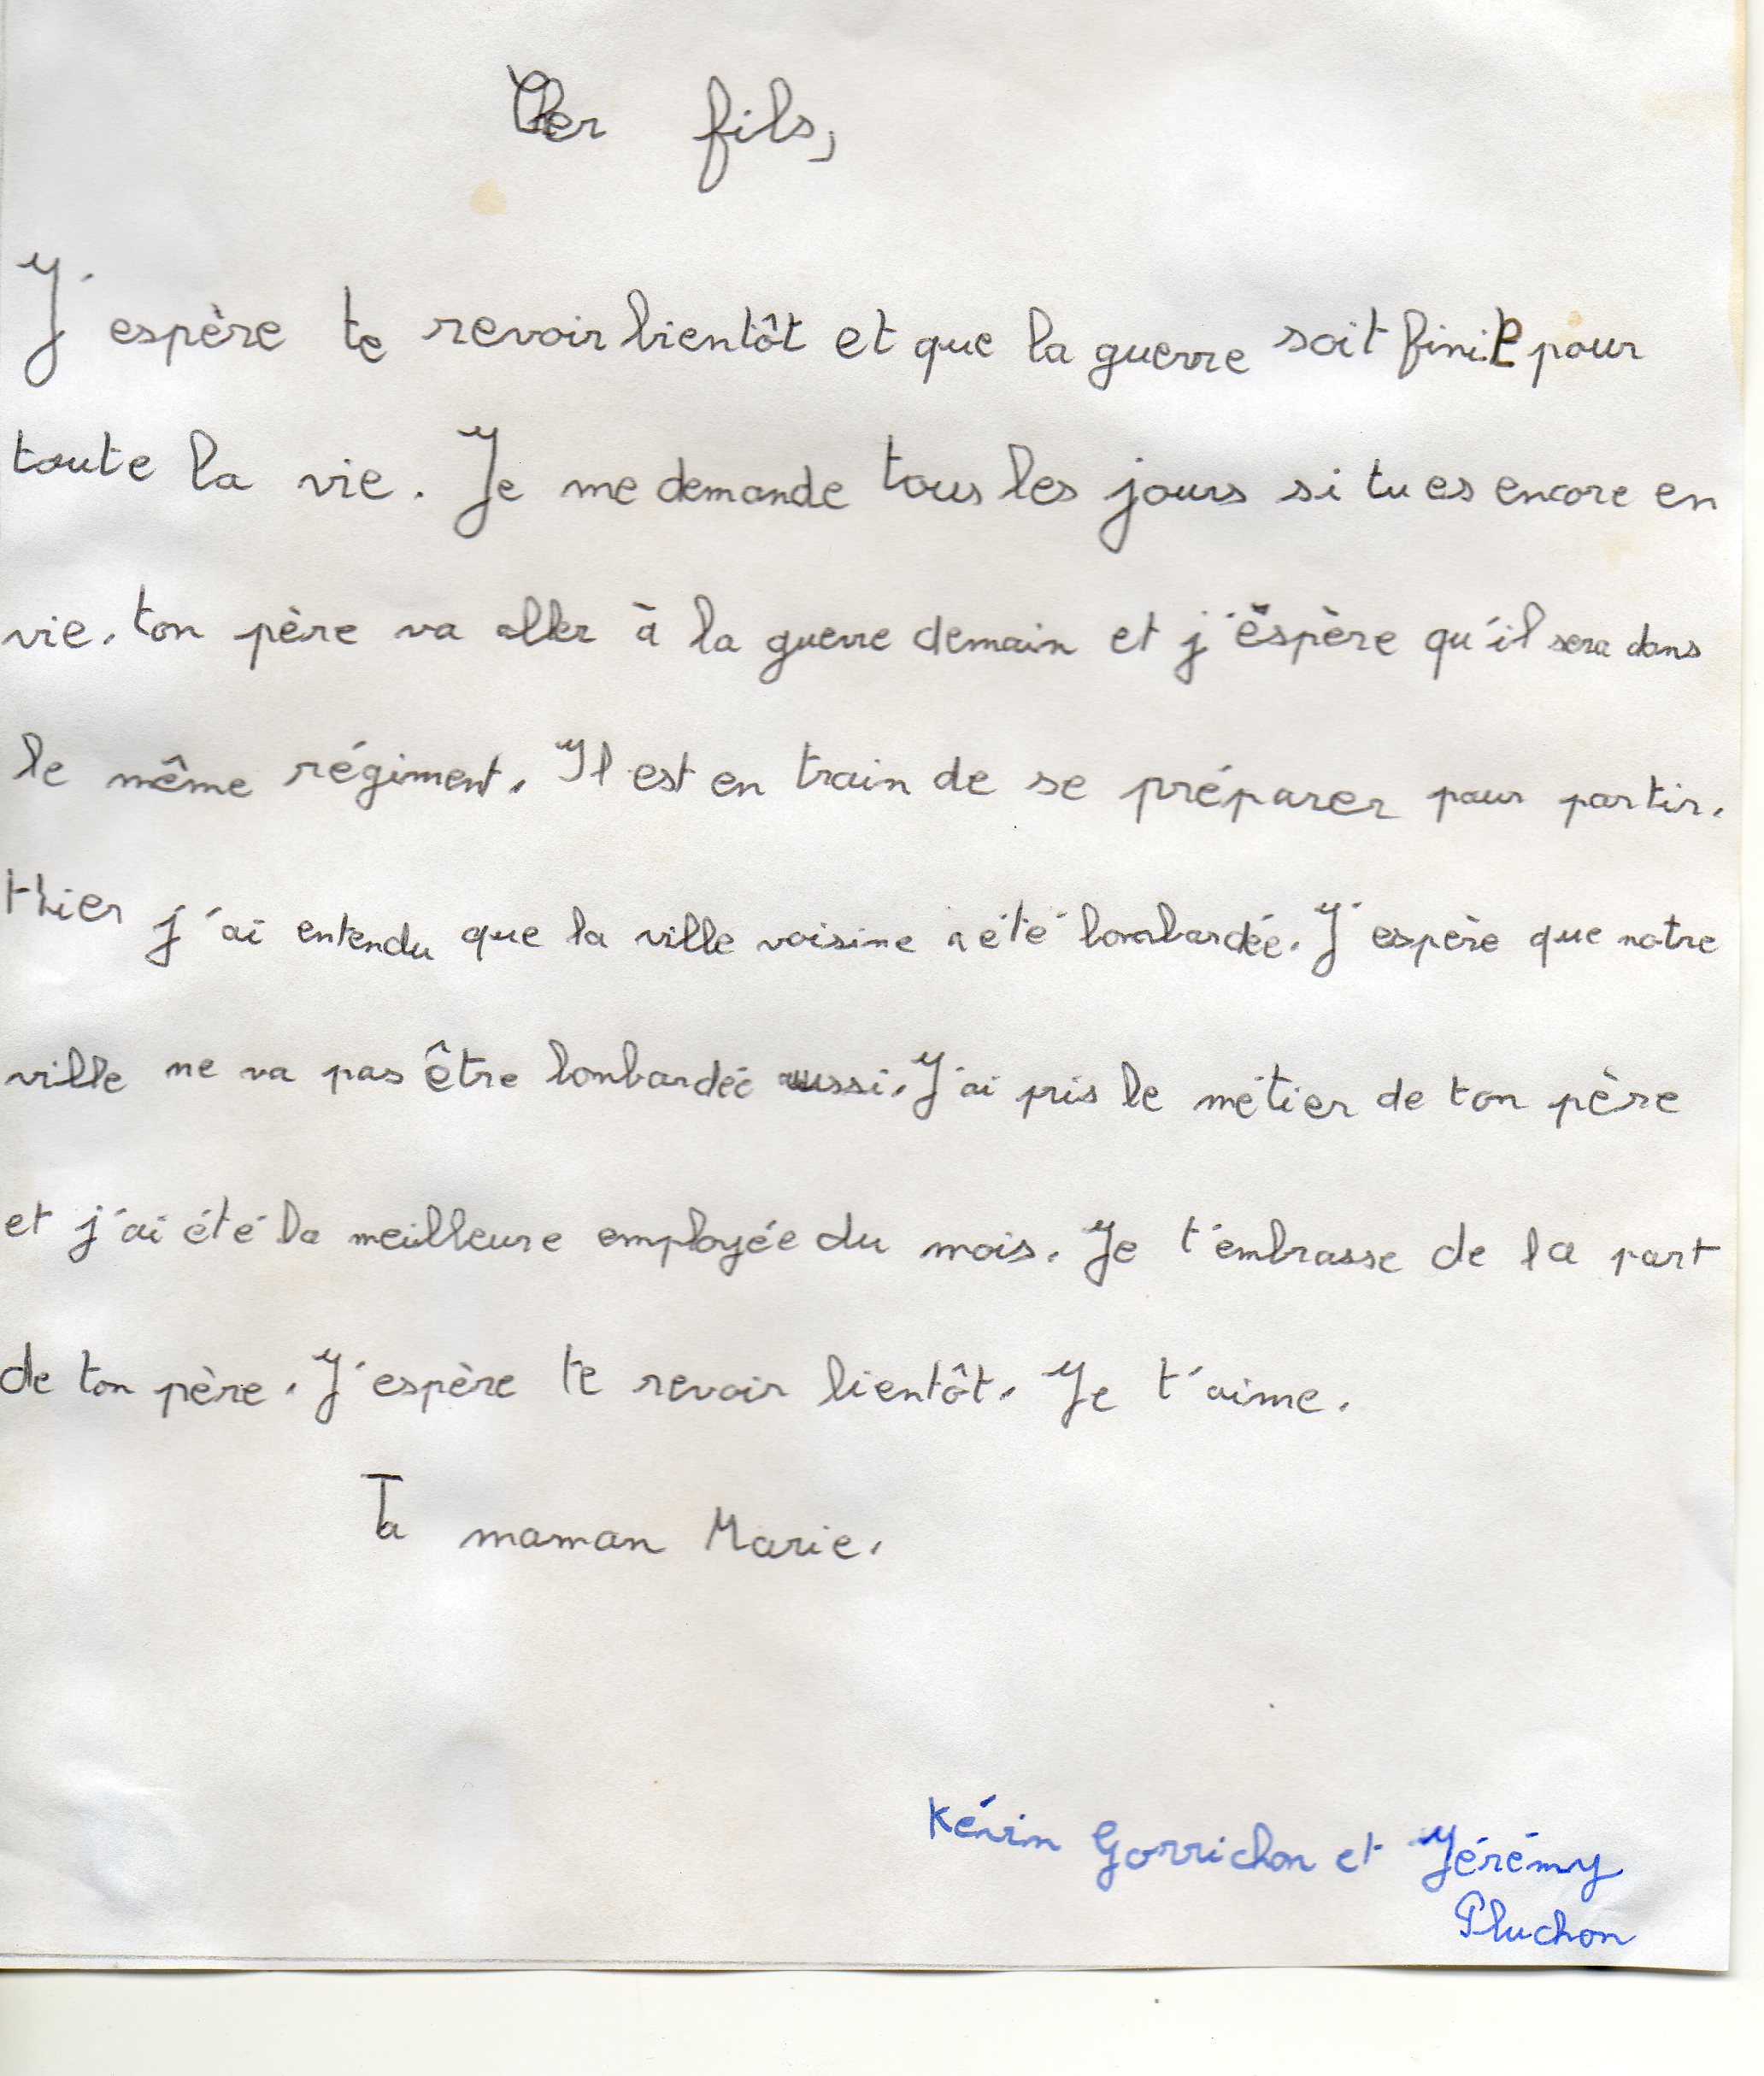 Cher fils,
J'espère te revoir bientôt et que la guerre soit finie pour
toute la vie. Je me demande tous les jours si tu es encore en
vie. ton père va aller à la guerre demain et j'éspère qu'il sera dans
le même régiment. Il est en train de se préparer pour partir.
Hier j'ai entendu que la ville voisine a été bombardée. J'espère que notre
ville ne va pas être bombardée aussi. J'ai pris le métier de ton père
et j'ai été la meilleure employée du mois. Je t'embrasse de la part
de ton père. J'espère te revoir bientôt. Je t'aime.
Ta maman Marie.
Kévin Gorrichon et Jérémy
Pluchon